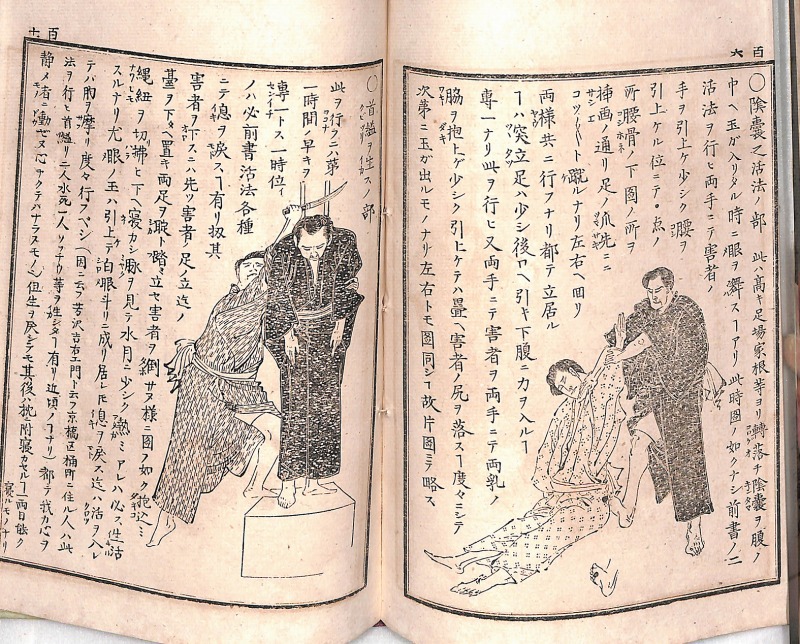 百六
〇陰囊之活法ノ部　此ハ高キ足場家根等ヨリ轉落チ陰囊ヲ腹ノ
巾ヘ玉が入リタル時ニ眼ヲ舞スヿアリ此時圖ノ如クナシ前書ノ二
活法ヲ行ヒ両手ニテ害者ノ
手ヲ引上ケ少シク腰ヲ
引上ケル位ニテ・点ノ
所腰骨ノ下圖ノ所ヲ
挿画ノ通リ足ノ爪先ニ
コツ〳〵ト蹴ルナリ左右ヘ回リ
両様共ニ行フナリ都テ立居ル
ヿハ突立足ハ少シ後ロヘ引キ下腹ニ力ヲ入ルヿ
専一ナリ此ヲ行ヒ又両手ニテ害者ヲ両手ニテ両乳ノ
脇ヲ抱上ゲ少シク引上ケテハ畳ヘ害者ノ尻ヲ落スヿ度々ニシテ
次第ニ玉が出ルモノナリ左右トモ圖同シヿ故片圖ニテ略ス
百十
〇首縊ヲ生スノ部
此ヲ行フニハ第
一時間ノ早キヲ
専一トス一時位
ノハ必前書活法各種
ニテ息ヲ戻スヿ有リ扨其
害者ヲ下スニハ先ツ害者ノ足立迄ノ
臺ヲ下ヘ置キ両足ヲ
立セ害者ヲ倒サヌ様ニ圖ノ如ク抱込ミ
縄紐ヲ切拂ヒ下ヘ寝カシ脉ヲ見テ水月ニ少シク熱ミアレハ必ス生活
スルナリ尤眼ノ玉ハ引上テ白眼斗リニ成リ居レ𪜈息ヲ戻ス迄ハ活ヲ入レ
テハ胸ヲ摩リ度々行フベシ（因ニ云フ芳沢吉右エ門ト云フ京橋区桶町ニ住ル人ハ此
法ヲ行ヒ首縊リ三人水死一人リ
有リ近頃ノヿナリ）都テ我カ心ヲ
静メ
心サクテハナラスモノ
但生ヲ戻シテモ其後ハ枕附寝カセルヿ一両日能ク
寝ルモノナリ